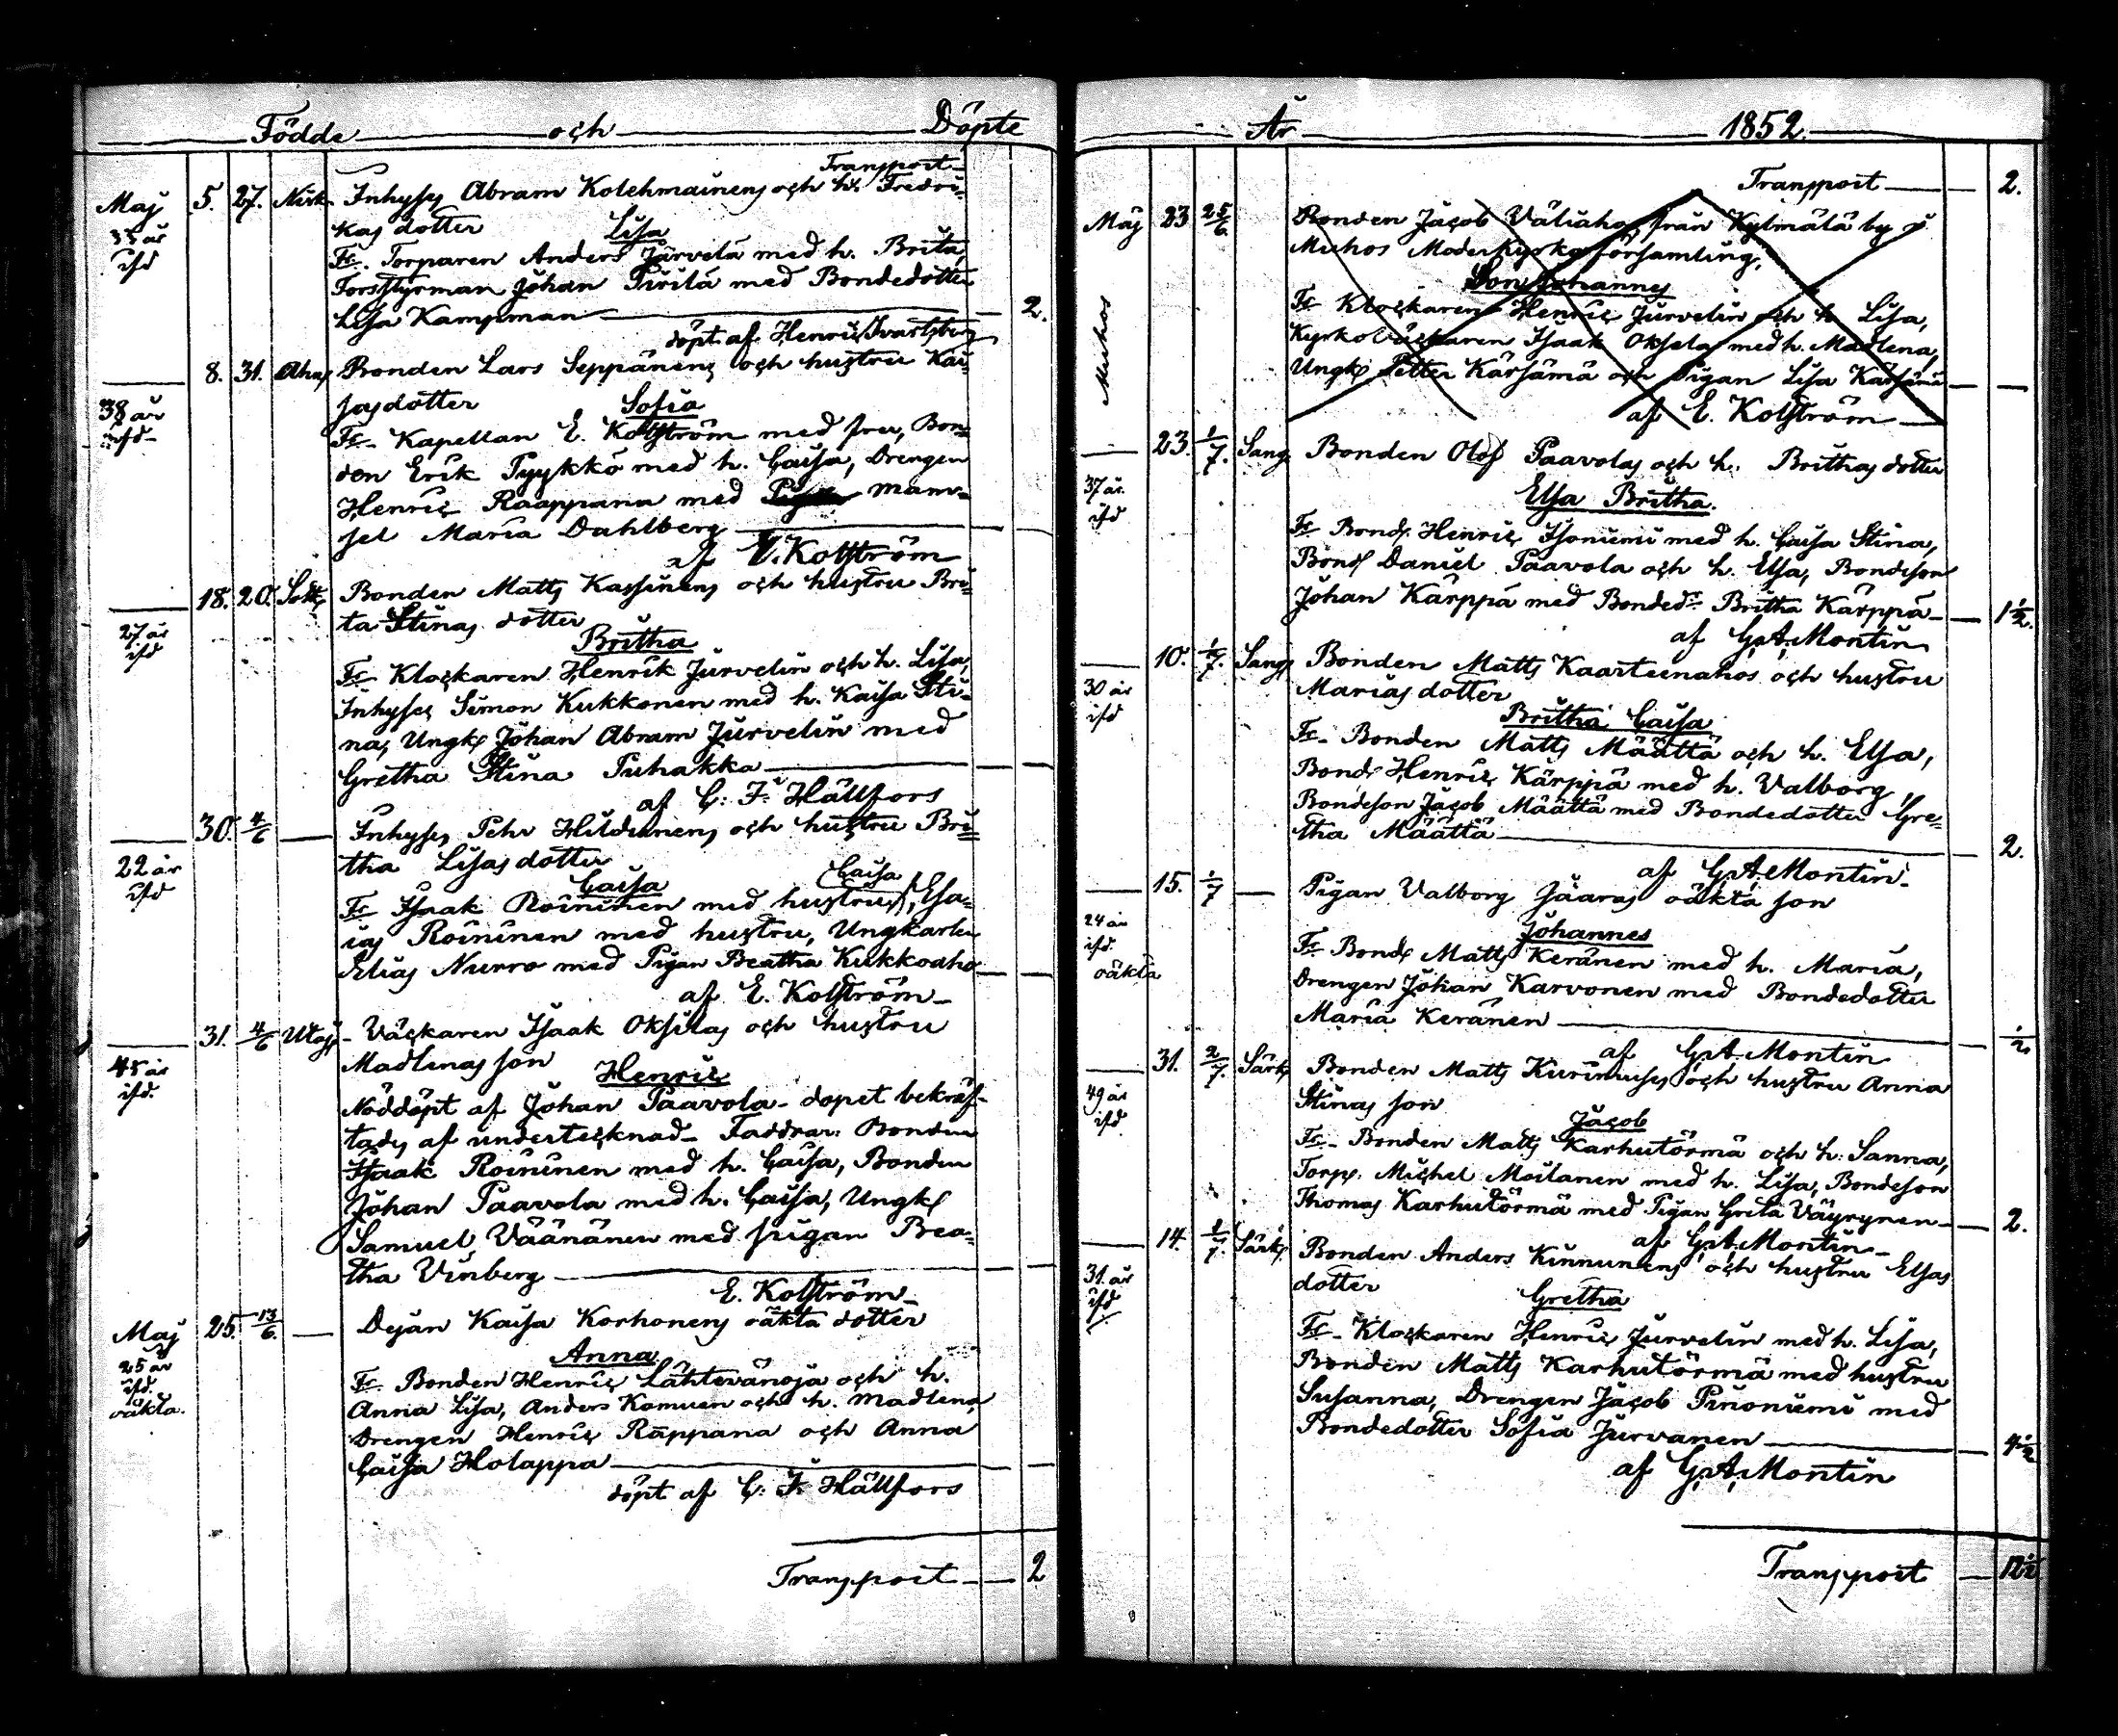 Födde och Döpte
Transport
Maj 5. 27. Nisk. Inhyses Abram Kolehmainens och h. Fredri-
33 år kas dotter Lisa
ifd Fr. Torparen Anders Järvelä med h. Brita,
Forststyrman Johan Pirilä med Bondedotter
Lisa Kampman 2.
döpt af Henric Svartsberg
8. 31. Ahas Bonden Lars Seppänens och hustru Kai-
38 år sas dotter Sofia
ifd Fr. Kapellan E. Kolström med fru, Bon-
den Erik Pyykkö med h. Caisa, Drengen
Henric Raappana med mam-
sel Maria Dahlberg
af E. Kolström
18. 20. Sotk. Bonden Matts Kassinens och hustru Bri-
27 år ta Stinas dotter
ifd Britha
Fr. Klockaren Henrik Jurvelin och h. Lisa,
Inhyses Simon Kukkonen med h. Kaisa Sti-
na, Ungk. Johan Abram Jurvelin med
Gretha Stina Puhakka
af C. F. Hällfors
30. 4/6 Inhyses Pehr Hildunens och hustru Bri-
22 år tha Lisas dotter
ifd Caisa Caisa
Fr. Isaak Roininen med hustru, Esa-
ias Roininen med hustru, Ungkarlen
Elias Nurro med Pigan Beatha Kukkoaho
af E. Kolström
31. 4/6 Utaj. Väckaren Isaak Oksilas och hustru
45 år Madlenas son Henric
ifd. Nöddöpt af Johan Paavola dopet bekräf-
tades af undertecknad Faddrar: Bonden
Isaak Roininen med h. Caisa, Bonden
Johan Paavola med h. Caisa, Ungk.
Samuel Väänänen med pigan Bea-
tha Vinberg
E. Kolström
Maj 25. 13/6. Dejan Kaisa Korhonens oäkta dotter
25 år Anna
ifd. Fr. Bonden Henric Lähtevänoja och h.
oäkta. Anna Lisa, Anders Komuen och h. Madlena
Drengen Henric Räppana och Anna
Caisa Holappa
döpt af C. F. Hällfors
Transport 2
År 1852.
Transport 2.
Maj 23 25/6. Bonden Jacob Väliahos från Kylmälä by i
Muhos Muhos Moderkyrkoförsamling,
Son Johannes
Fr. Klockaren Henric Jurvelin och h. Lisa,
Kyrkoväckaren Isaak Oksela med h. Madlena,
Ungk. Petter Kärsämä och Pigan Lisa Kärsämä
af E. Kolström
23. 1/7. Sang. Bonden Olof Paavolas och h. Brithas dotter
37 år Elsa Britha.
ifd Fr. Bond. Henric Isoniemi med h. Caisa Stina,
Bond. Daniel Paavola och h. Elsa, Bondeson
Johan Kärppä med Bonded:r Britha Kärppä 1 1/2.
af G. A. Montin
10. 1/7. Sang. Bonden Matts Kaarteenahos och hustru
30 år Marias dotter
ifd Britha Caisa
Fr. Bonden Matts Määttä och h. Elsa,
Bond. Henric Kärppä med h. Valborg,
Bondeson Jacob Määttä med Bondedotter Gre-
tha Määttä 2.
af G. A. Montin
15. 1/7 Pigan Valborg Jäaras oäkta son
24 år Johannes
ifd. Fr. Bond. Matts Keränen med h. Maria,
oäkta Drengen Johan Karvonen med Bondedotter
Maria Keränen 1/2.
af G. A. Montin
31. 2/7. Särk. Bonden Matts Kurimuses och hustru Anna
49 år Stinas son Jacob
ifd Fr. Bonden Matts Karhutörmä och h. Sanna,
Torp. Michel Moilanen med h. Lisa, Bondeson
Thomas Karhutörmä med Pigan Greta Väyrynen 2.
af G. A. Montin
14. 2/7. Särk. Bonden Anders Kinnunens och hustru Elsas
31 år dotter Gretha
ifd Fr. Klockaren Henric Jurvelin med h. Lisa,
Bonden Matts Karhutörmä med hustru
Susanna, Drengen Jacob Pirioniemi med
Bondedotter Sofia Jurvanen 4 1/2
af G. A. Montin
Transport 12 1/2